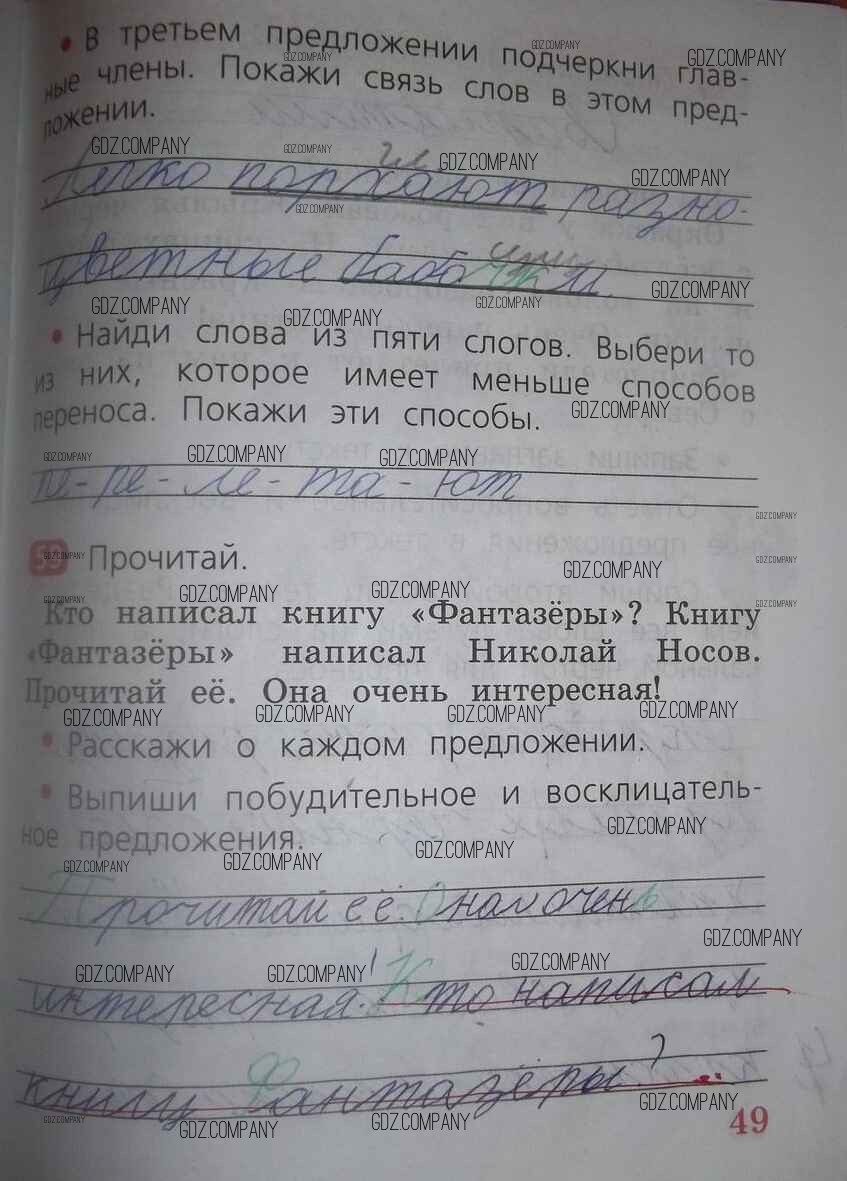 • В третьем предложении подчеркни глав-
ные члены. Покажи связь слов в этом пред-
ложении.
гл.
Легко порхают разно-
сущ.
цветные бабочки.
• Найди слова из пяти слогов. Выбери то
из них, которое имеет меньше способов
переноса. Покажи эти способы.
пе-ре-ле-та-ют
59 Прочитай.
Кто написал книгу «Фантазёры»? Книгу
«Фантазёры» написал Николай Носов.
Прочитай её. Она очень интересная!
• Расскажи о каждом предложении.
• Выпиши побудительное и восклицатель-
ное предложения.
Прочитай её. Она очень
интересная! Кто написал
книгу Фантазёры?
49
GDZ.COMPANY